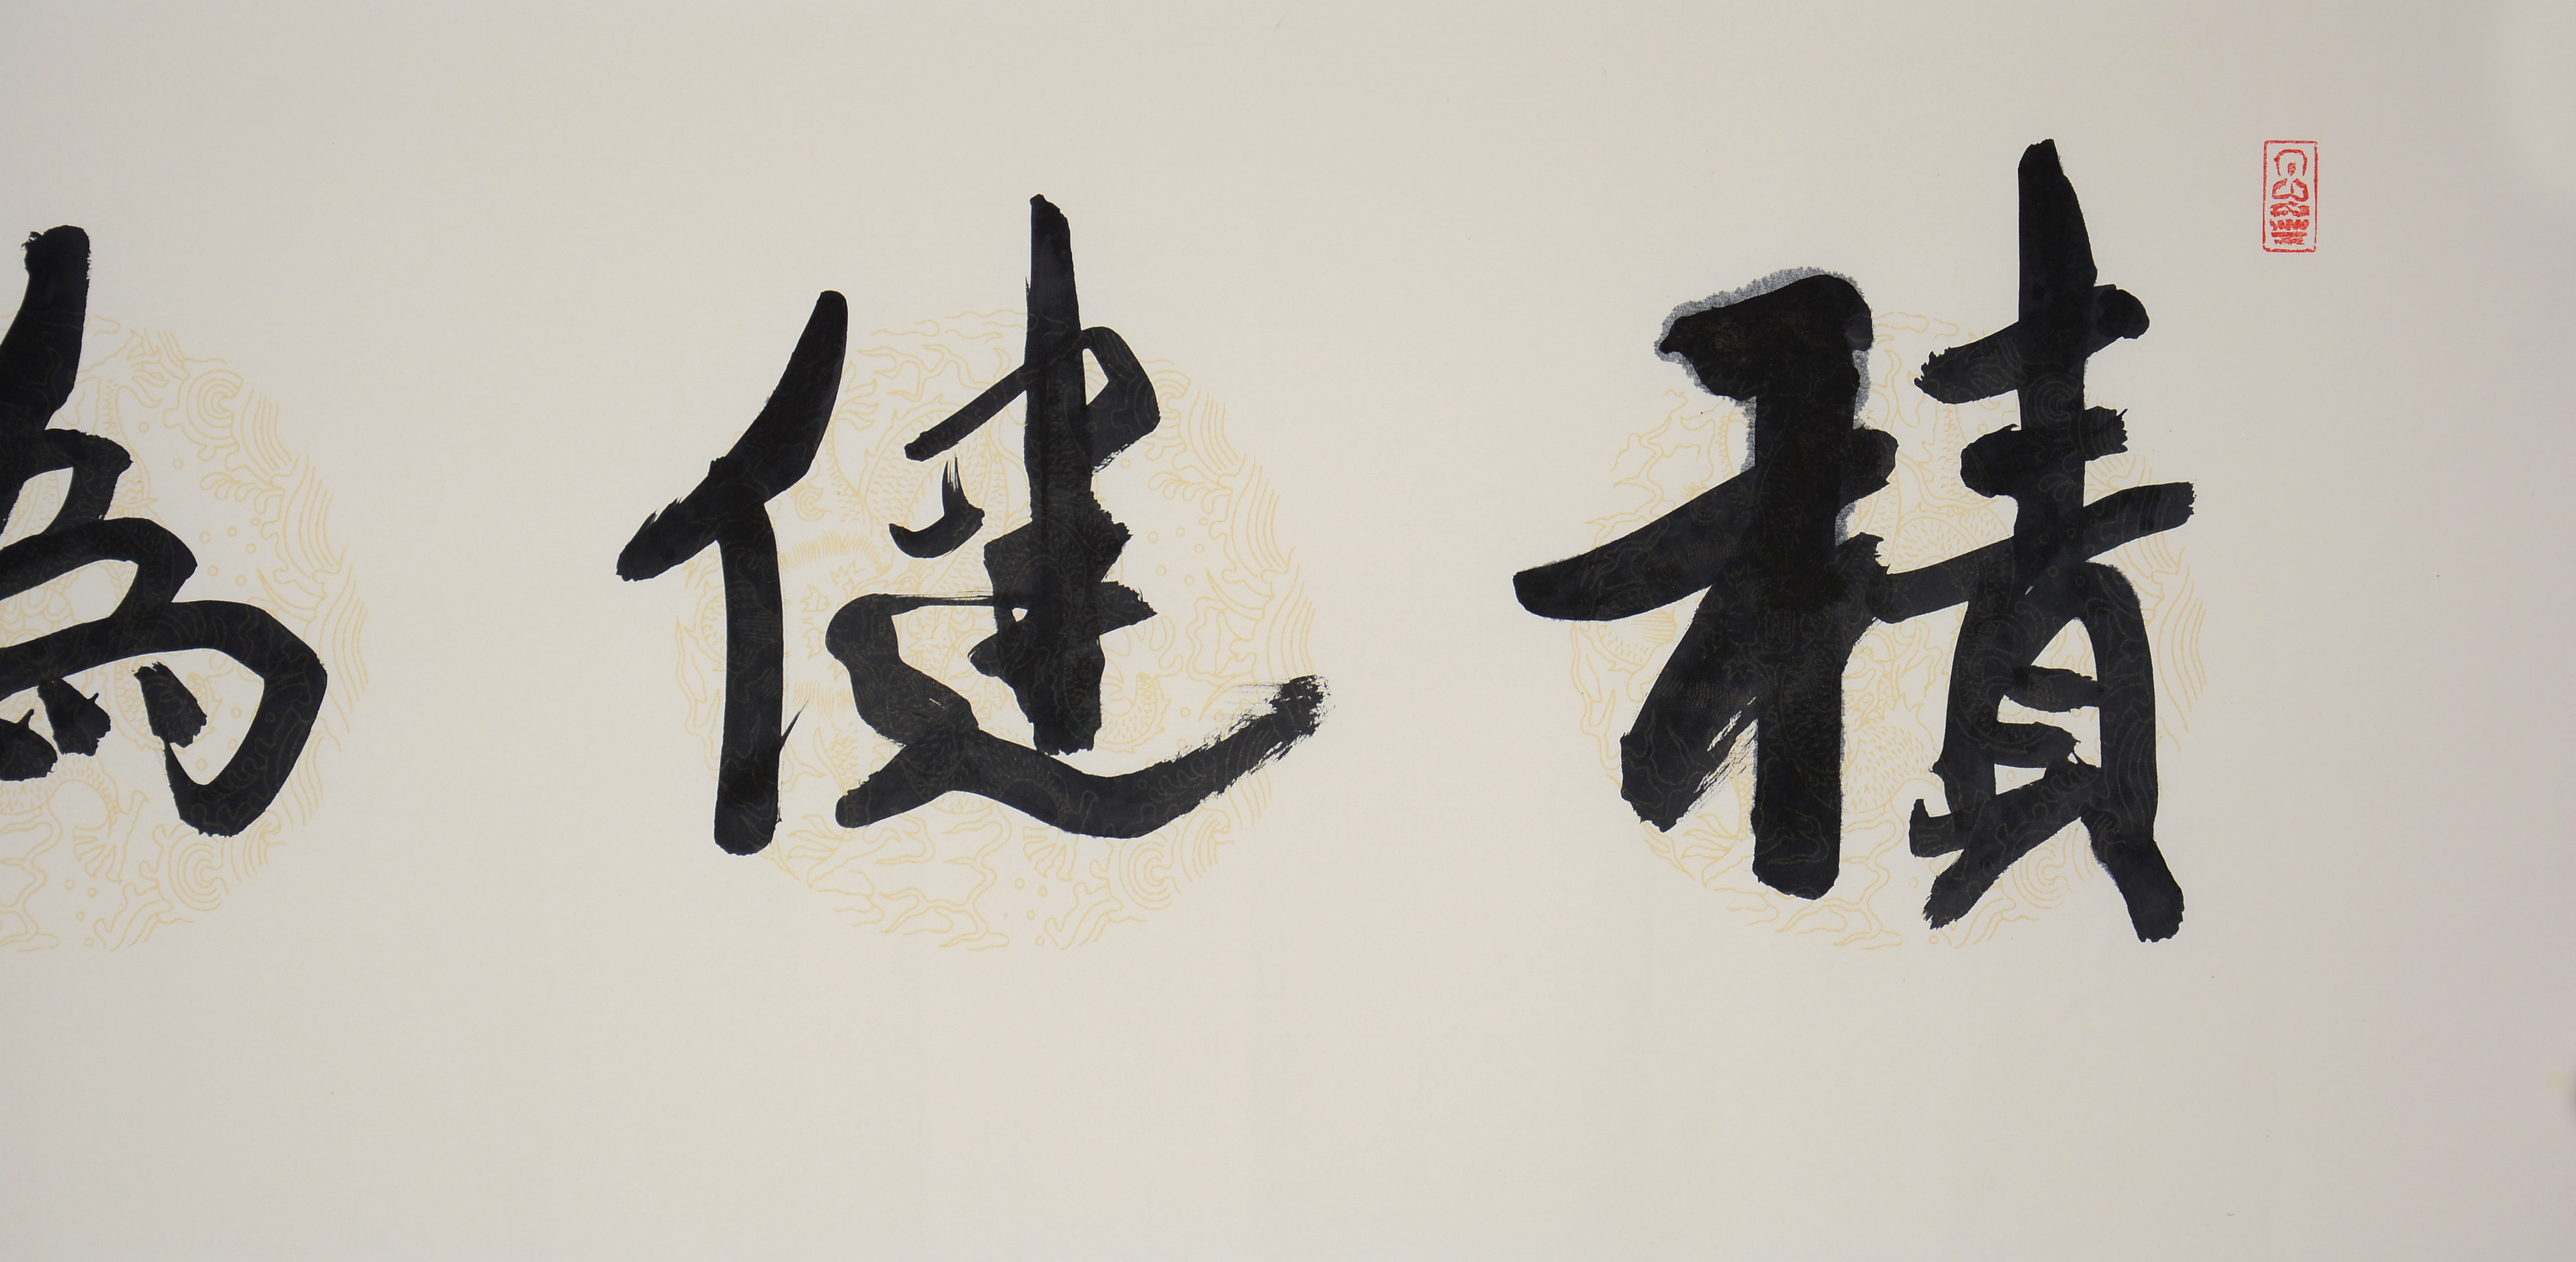 積健為